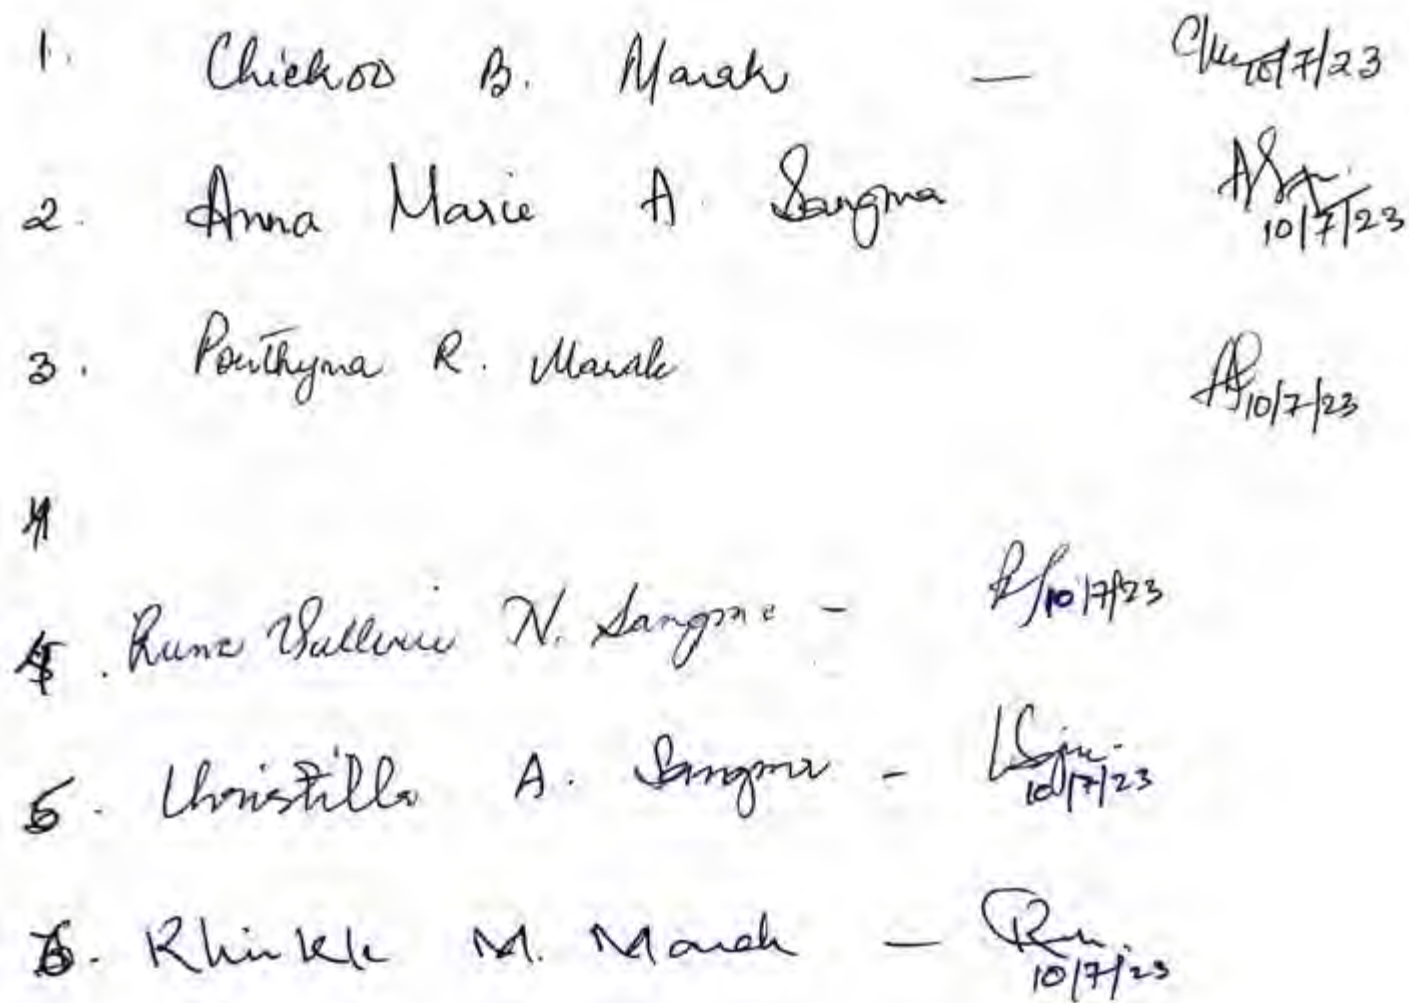 1. Chickoo B. Marak — 10/7/23
2. Anna Marie A. Sangma 10/7/23
3. Ponthyna R. Marak 10/7/23
4. Runa N. Sangma - 10/7/23
5. Christilla A. Sangma - 10/7/23
6. Rhinkle M. Marak — 10/7/23